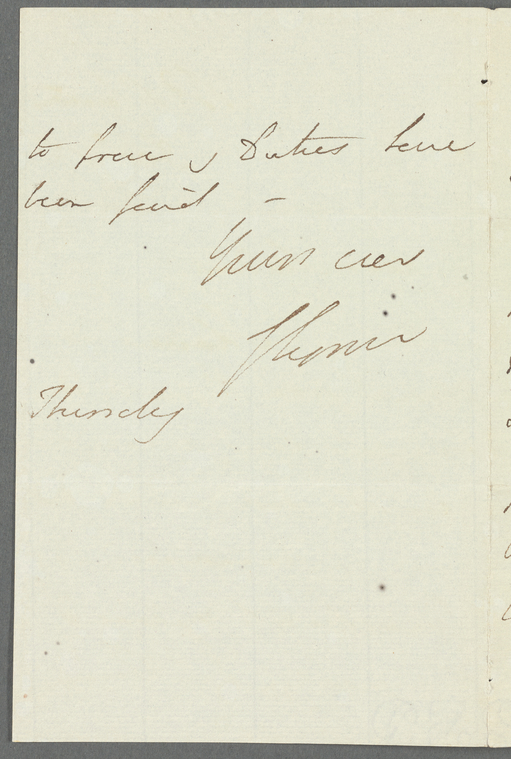 to prove y Duties have
been paid —
Yours ever
Thursday